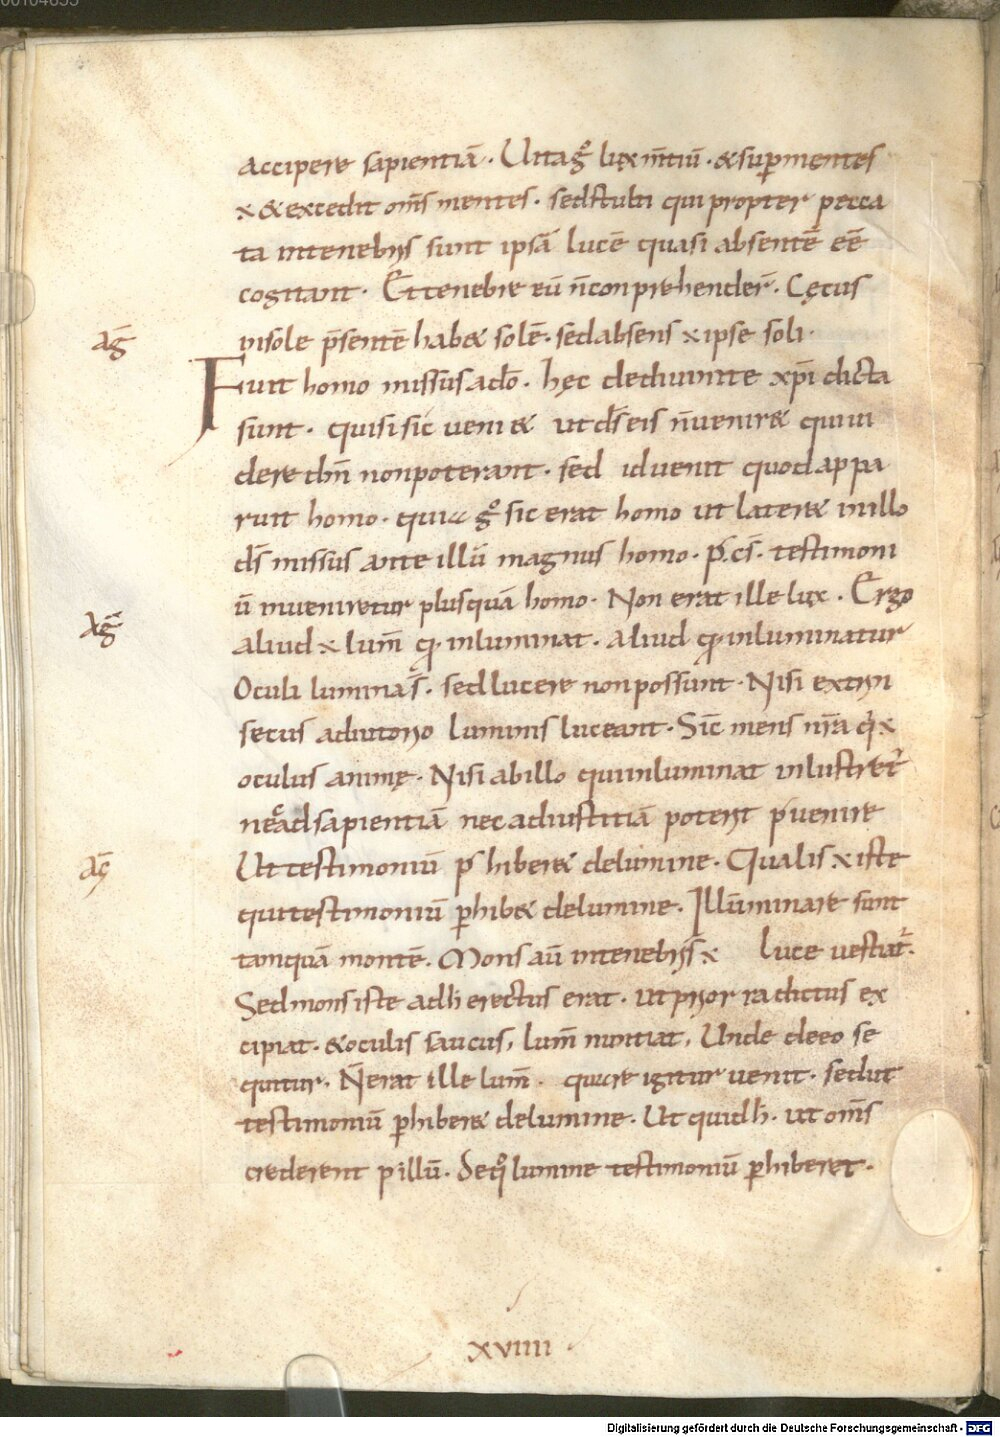 00104855
accipere sapientiā. Uita gº lux m̄tiū. & suꝑ mentes
x & excedit om̄s mentes. sed stulti qui propter pecca
ta intenebris sunt ipsā lucē quasi absentē eē
cogitant. Et tenebre eū n̄ conprehender̄. Cęcus
insole p̄sentē hab& solē. sed absens x ipse soli.
Aḡ
Fuit homo missus a dō. hęc dediuinite xp̄i dicta
sunt. qui si sic ueni& ut d̄s eis n̄ uenir& qui ui
dere dn̄ non poterant. sed id uenit quod appa
ruit homo. quia gº sic erat homo ut later& in illo
d̄s missus ante illū magnus homo. p̄. cs̄. testimoni
ū inueniretur plusquā homo. Non erat ille lux. Ergo
Aḡ
aliud x lum̄ qđ inluminat. aliud qđ inluminatur
Oculi lumina s̄. sed lucere non possunt. Nisi extrin
secus adiutorio luminis luceant. Sic̄ mens nr̄a q̇ x
oculus animę. Nisi ab illo qui inluminat inlustret̄
neº ad sapientiā nec ad iustitiā poterit puenire
Aḡ
Ut testimoniū phiber& delumine. Qualis x iste
qui testimoniū ꝑhib& delumine. Illūminare sunt
tamquā montē. Mons aū intenebris x luce uestiat̄.
Sed mons iste adh erectus erat. ut prior radictus ex
cipiat. & oculis saucus, lum̄ nuntiat, Unde deeo se
quitur. N̄ erat ille lum̄. quare igitur uenit. sed ut
testimoniū ꝑhiber& delumine. Ut quid h. ut om̄s
crederent p illū. de qº lumine testimoniū ꝑhiberet.
xviiii
Digitalisierung gefördert durch die Deutsche Forschungsgemeinschaft - DFG